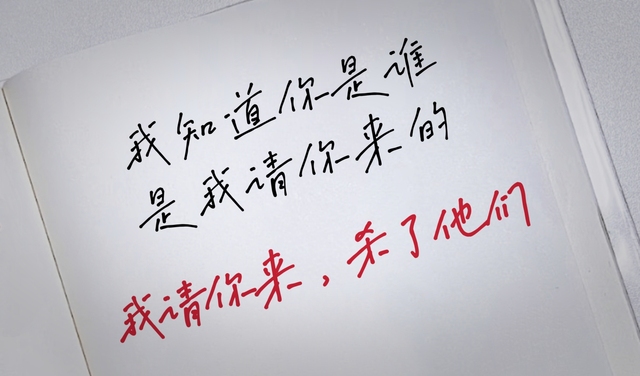 我知道你是谁
是我请你来的
我请你来，杀了他们